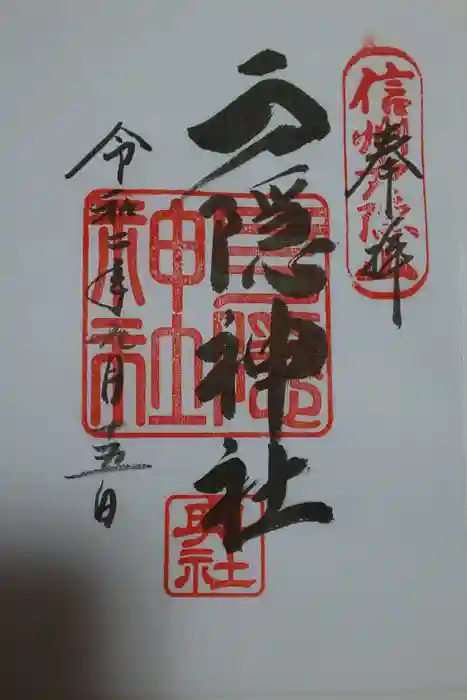 奉拝
信州戸隠
戸隠神社
戸隠神社
社
令和二年月十五日